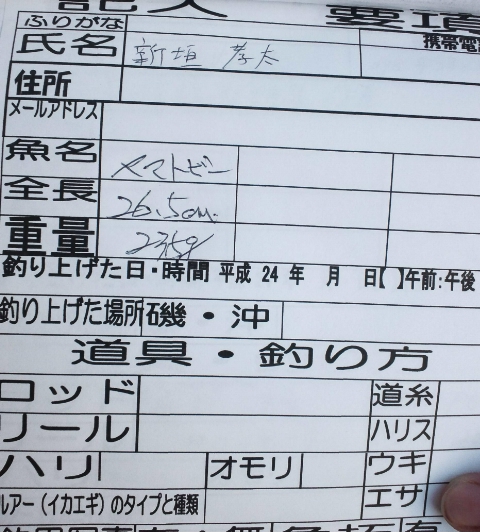 記入 要項
ふりがな
氏名 新垣 孝太 携帯電
住所
メールアドレス
魚名 ヤマトビー
全長 26.5cm
重量 235g
釣り上げた日・時間 平成 24 年 月 日【 】午前:午後
釣り上げた場所 磯・沖
道具・釣り方
ロッド 道糸
リール ハリス
ハリ オモリ ウキ
ルアー(イカエギ)のタイプと種類 エサ